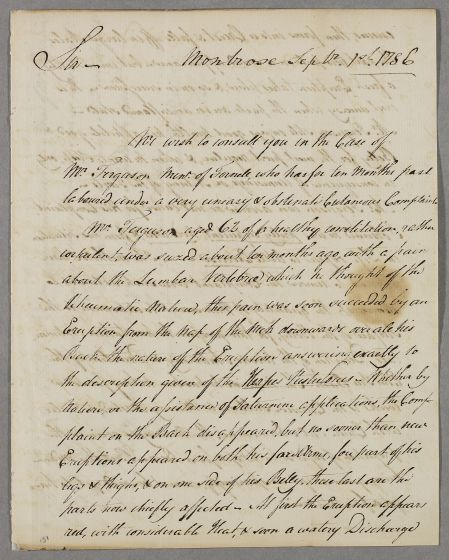 Sir Montrose Sepbr. 1st. 1786
We wish to consult you in the Case of
Mr. Ferguson Minr. of Farnell, who has for ten months past
laboured under a very uneasy & obstinate Cutaneous Complaint
Mr. Ferguson aged 62 of a healthy constitution, rather
corpulent, was seized about ten months ago with a pain
about the Lumbar Vertebræ which he thought of the
Rheumatic Nature, this pain was soon succeeded by an
Eruption from the Nap of the Neck downwards over all his
Back the nature of the Eruption answering exactly to
the description given of the Herpes Pustulosus – Whether by
Nature, or the assistance of Saturnine applications, the Com=
plaint on the Back disappeared, but no sooner than new
Eruptions appeared on both his fore Arms, fore part of his
legs & thighs, & on one side of his Belly, these last are the
parts now chiefly affected – At first the Eruption appears
red, with considerable Heat, & soon a watery Discharge